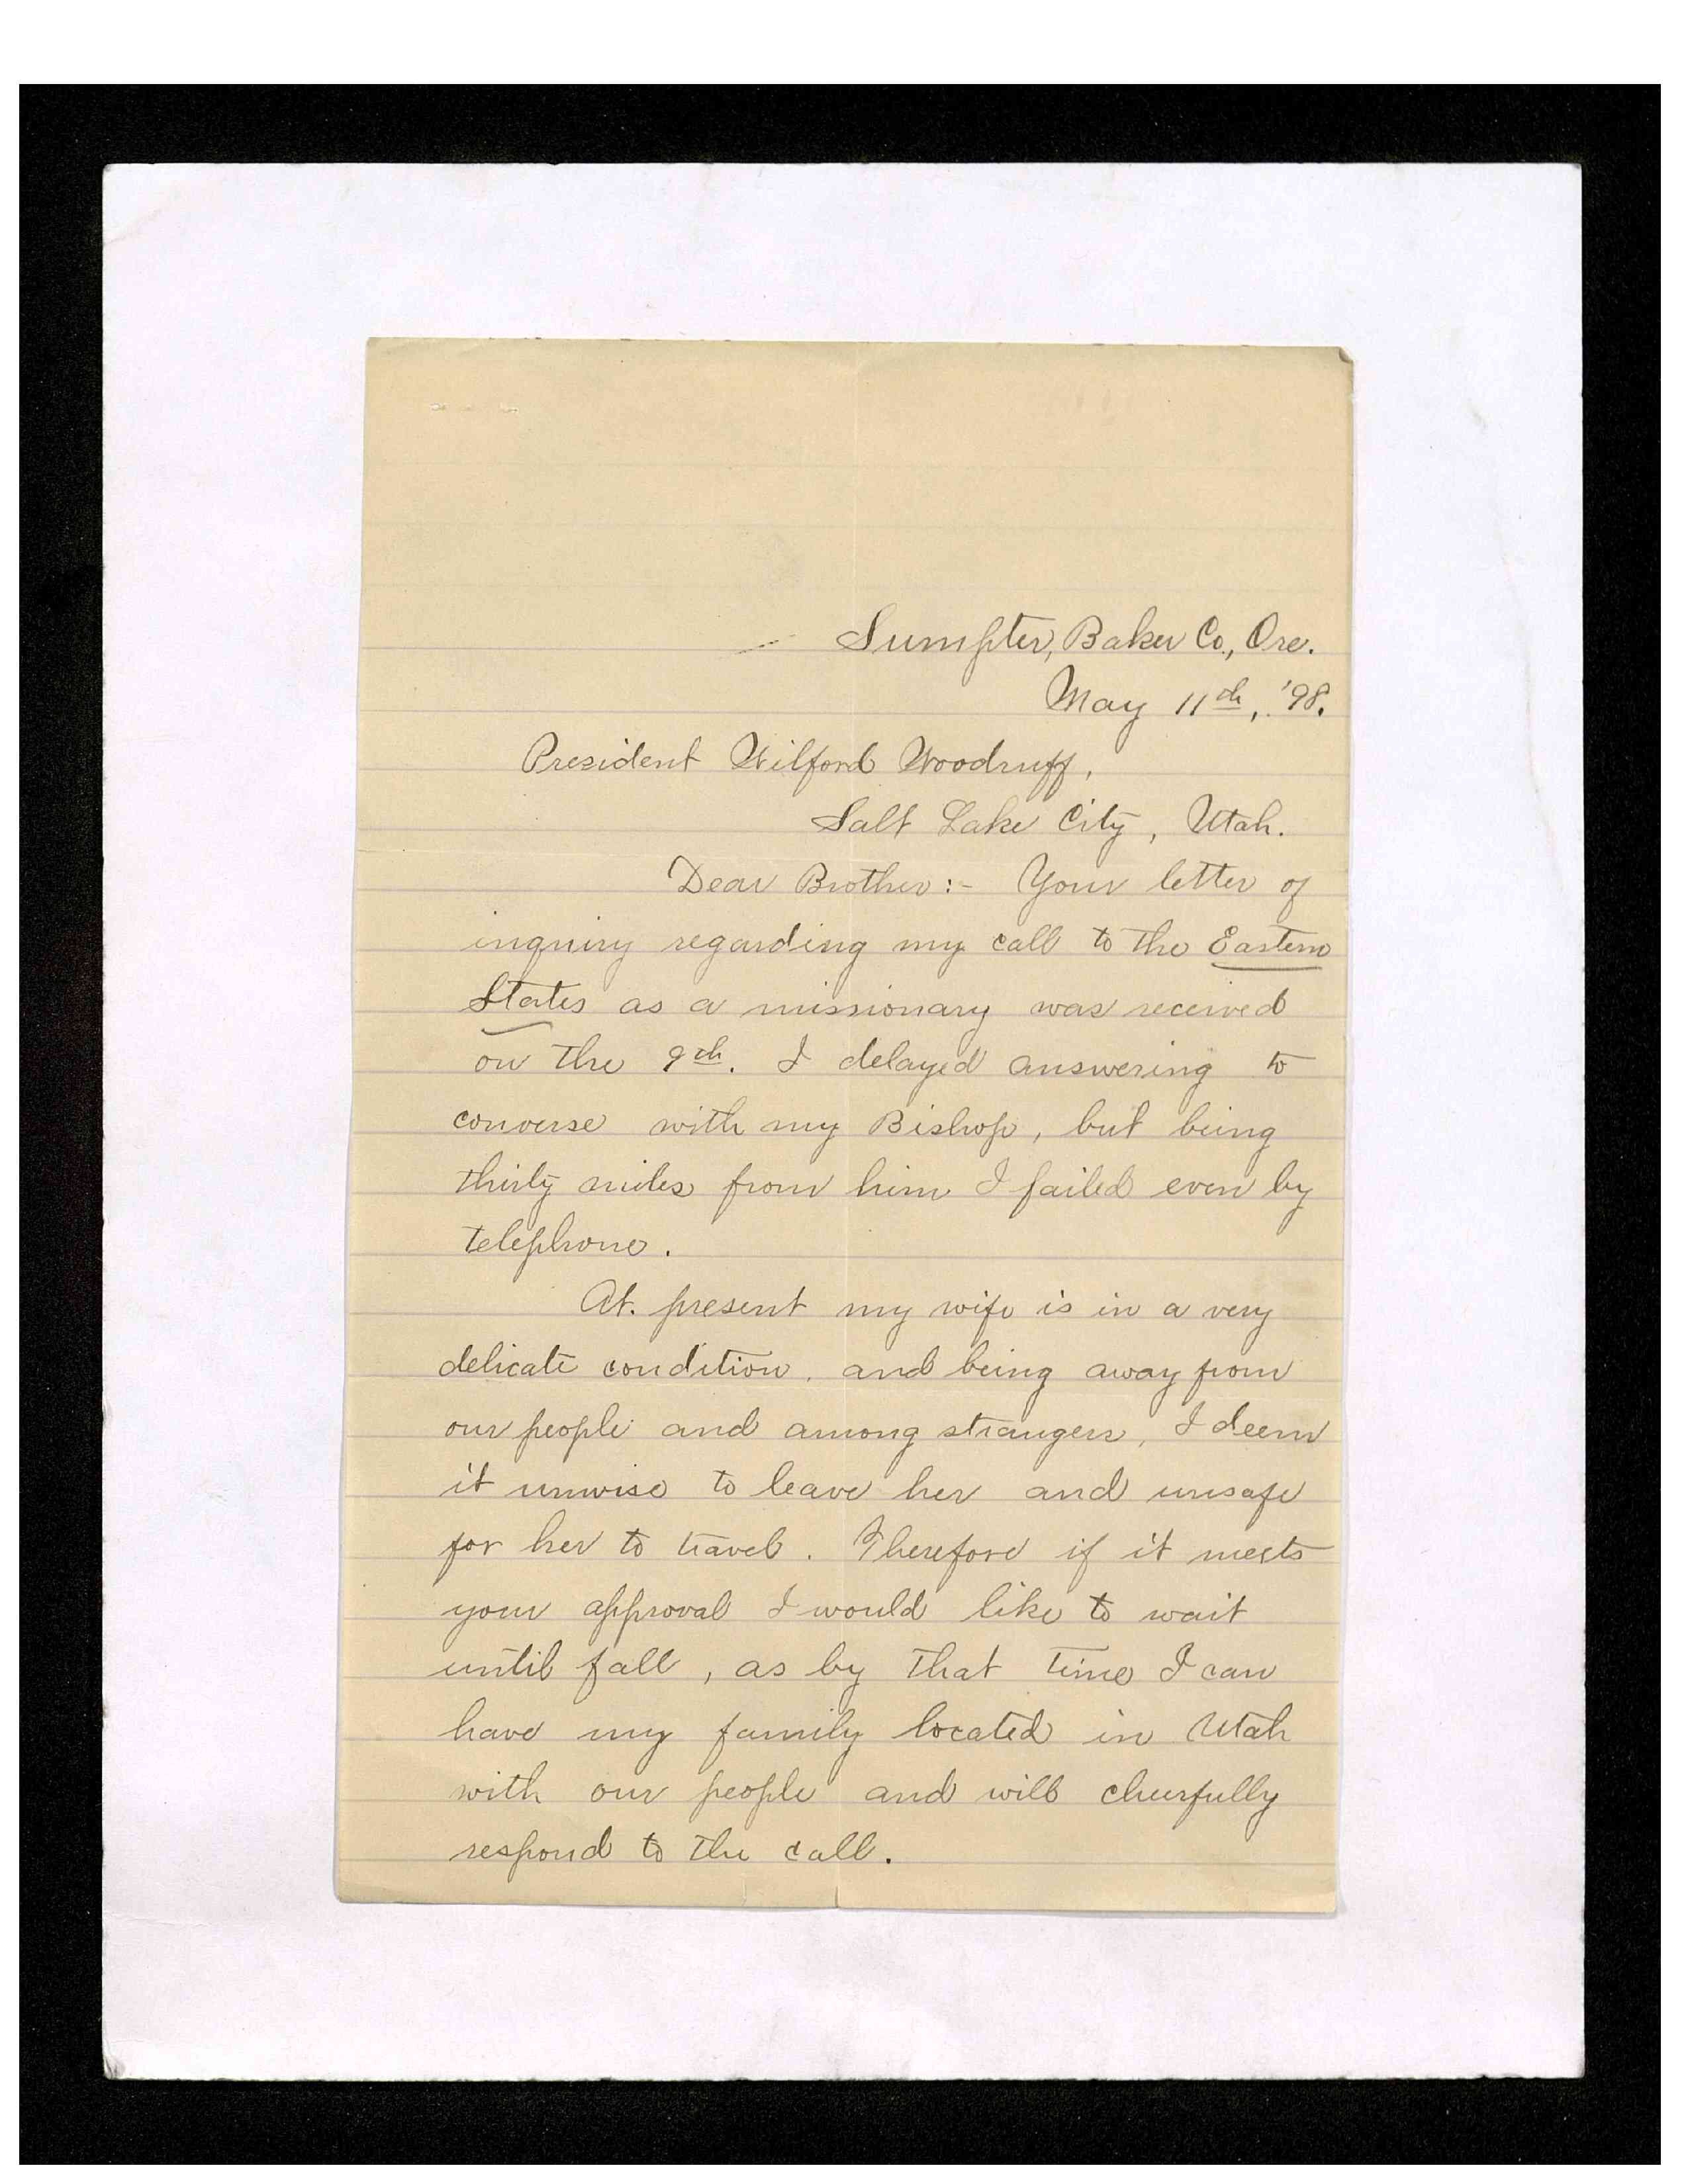 Sumpter, Baker Co., Ore.
May 11th, '98.
President Wilford Woodruff,
Salt Lake City, Utah.
Dear Brother:- Your letter of
inquiry regarding my call to the Eastern
States as a missionary was received
on the 9th. I delayed answering to
converse with my Bishop, but being
thirty miles from him I failed even by
telephone.
At. present my wife is in a very
delicate condition, and being away from
our people and among strangers, I deem
it unwise to leave her and unsafe
for her to travel. Therefore if it meets
your approval I would like to wait
until fall, as by that time I can
have my family located in Utah
with our people and will cheerfully
respond to the call.